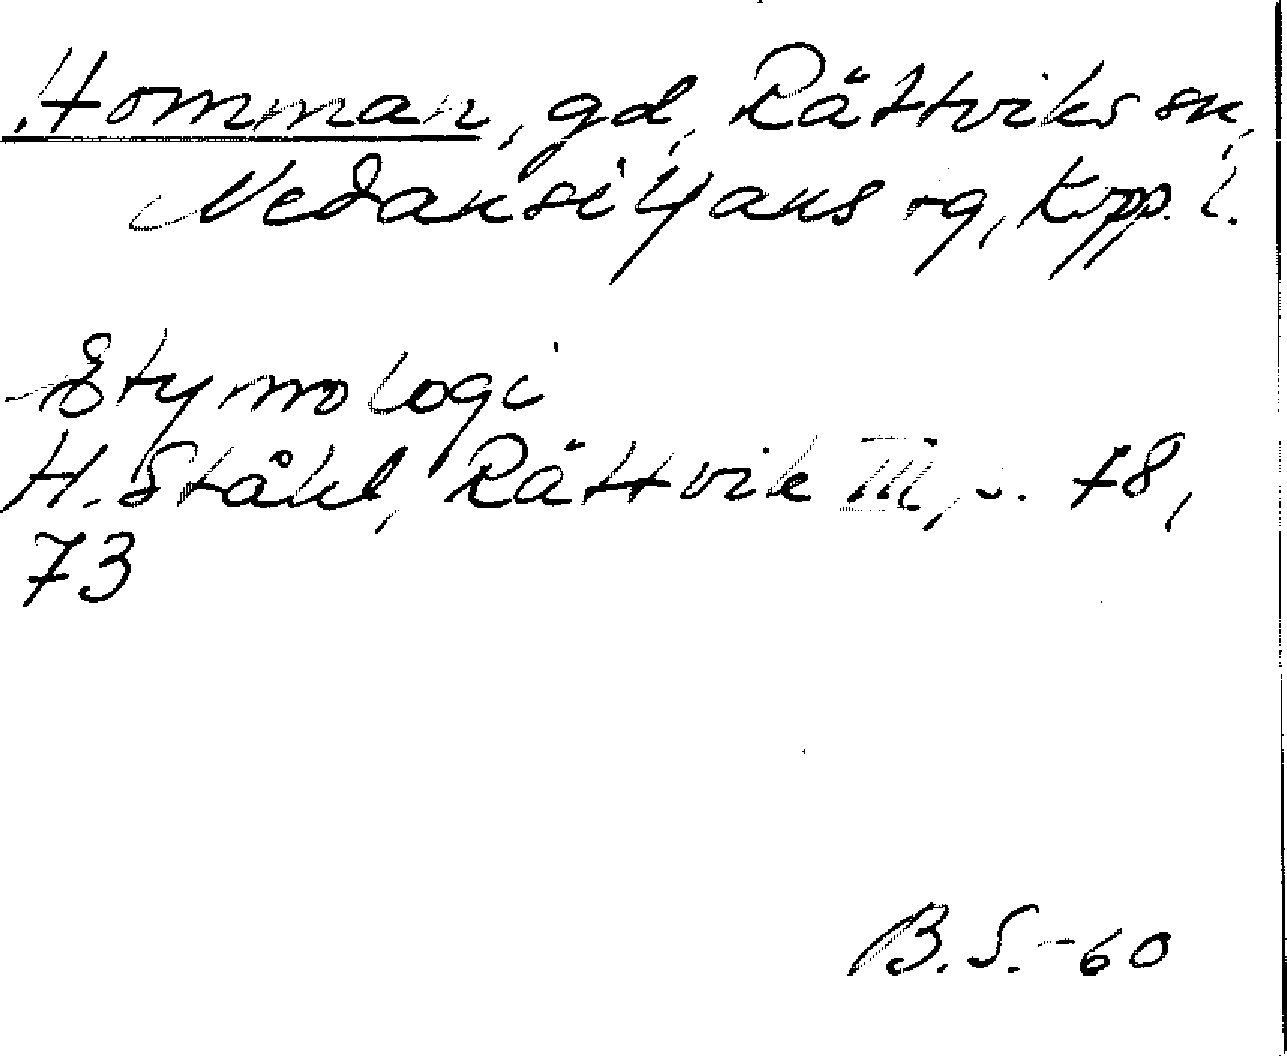 Homman, gd, Rättviks sn,
Nedansiljans tg, Kopp. l.
Etymologi
H. Ståhl, Rättvik III, s. 78,
73
B.S.-60